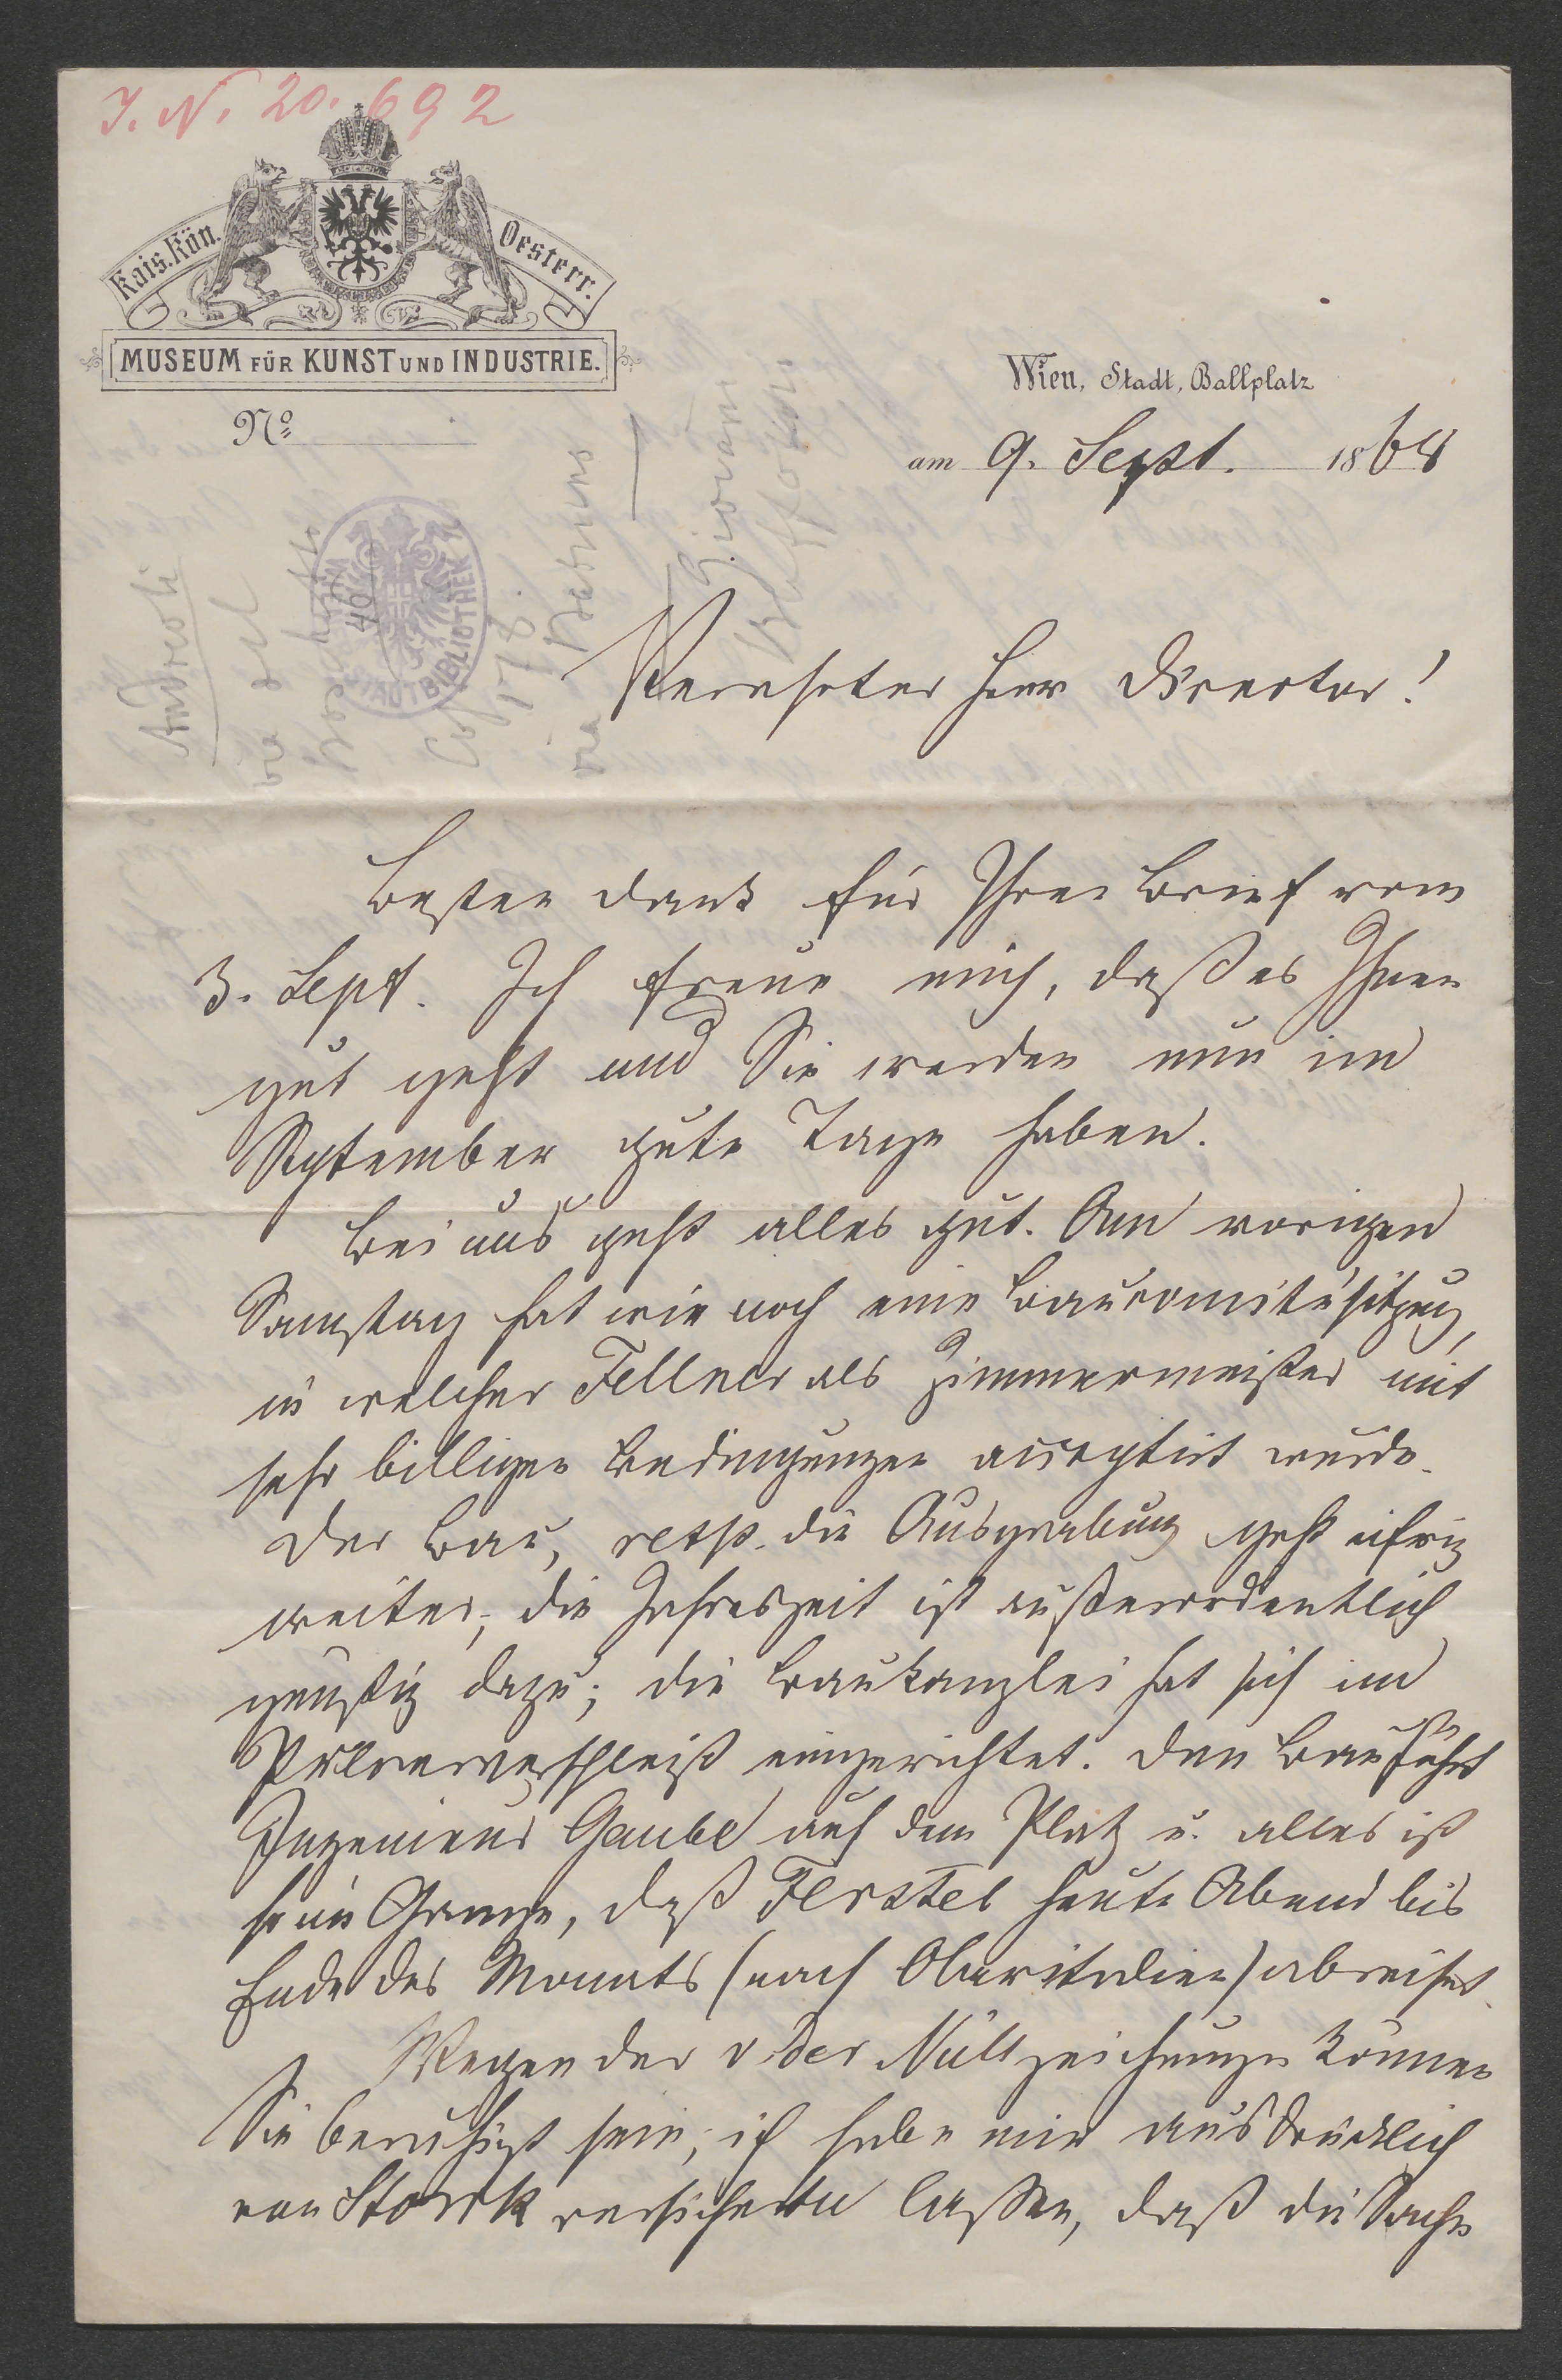 J. N. 20.692
Kais. Kön. Oesterr.
MUSEUM FÜR KUNST UND INDUSTRIE.
No
Wien, Stadt, Ballplatz
am 9. Sept. 1868
Andreoli
via del
Cos 178.
via
Giovanni
STADTBIBLIOTHEK
Verehrter Herr Director!
Besten Dank für Ihren Brief vom
3. Sept. Ich freue mich, daß es Ihnen
gut geht und Sie werden nun im
September gute Tage haben.
Bei uns geht alles gut. Am vorigen
Samstag hat wir noch eine Baucomitésitzung,
in welcher Fellner als Zimmermeister mit
sehr billigen Bedingungen acceptirt wurde.
Der Bau, resp. die Ausgrabung geht eifrig
weiter, die Jahreszeit ist außerordentlich
günstig dazu; die Baukanzlei hat sich im
Pulververschleiß eingerichtet. Den Bau führt
Ingenieur Gaube auf dem Platz u. alles ist
so im Gange, daß Ferstel heute Abend bis
Ende des Monats (nach Oberitalien) abreiset.
Wegen der v der Nüll zeichnungen können
Sie beruhigt sein; ich habe mir ausdrücklich
von Storck versichern lassen, daß die Sache